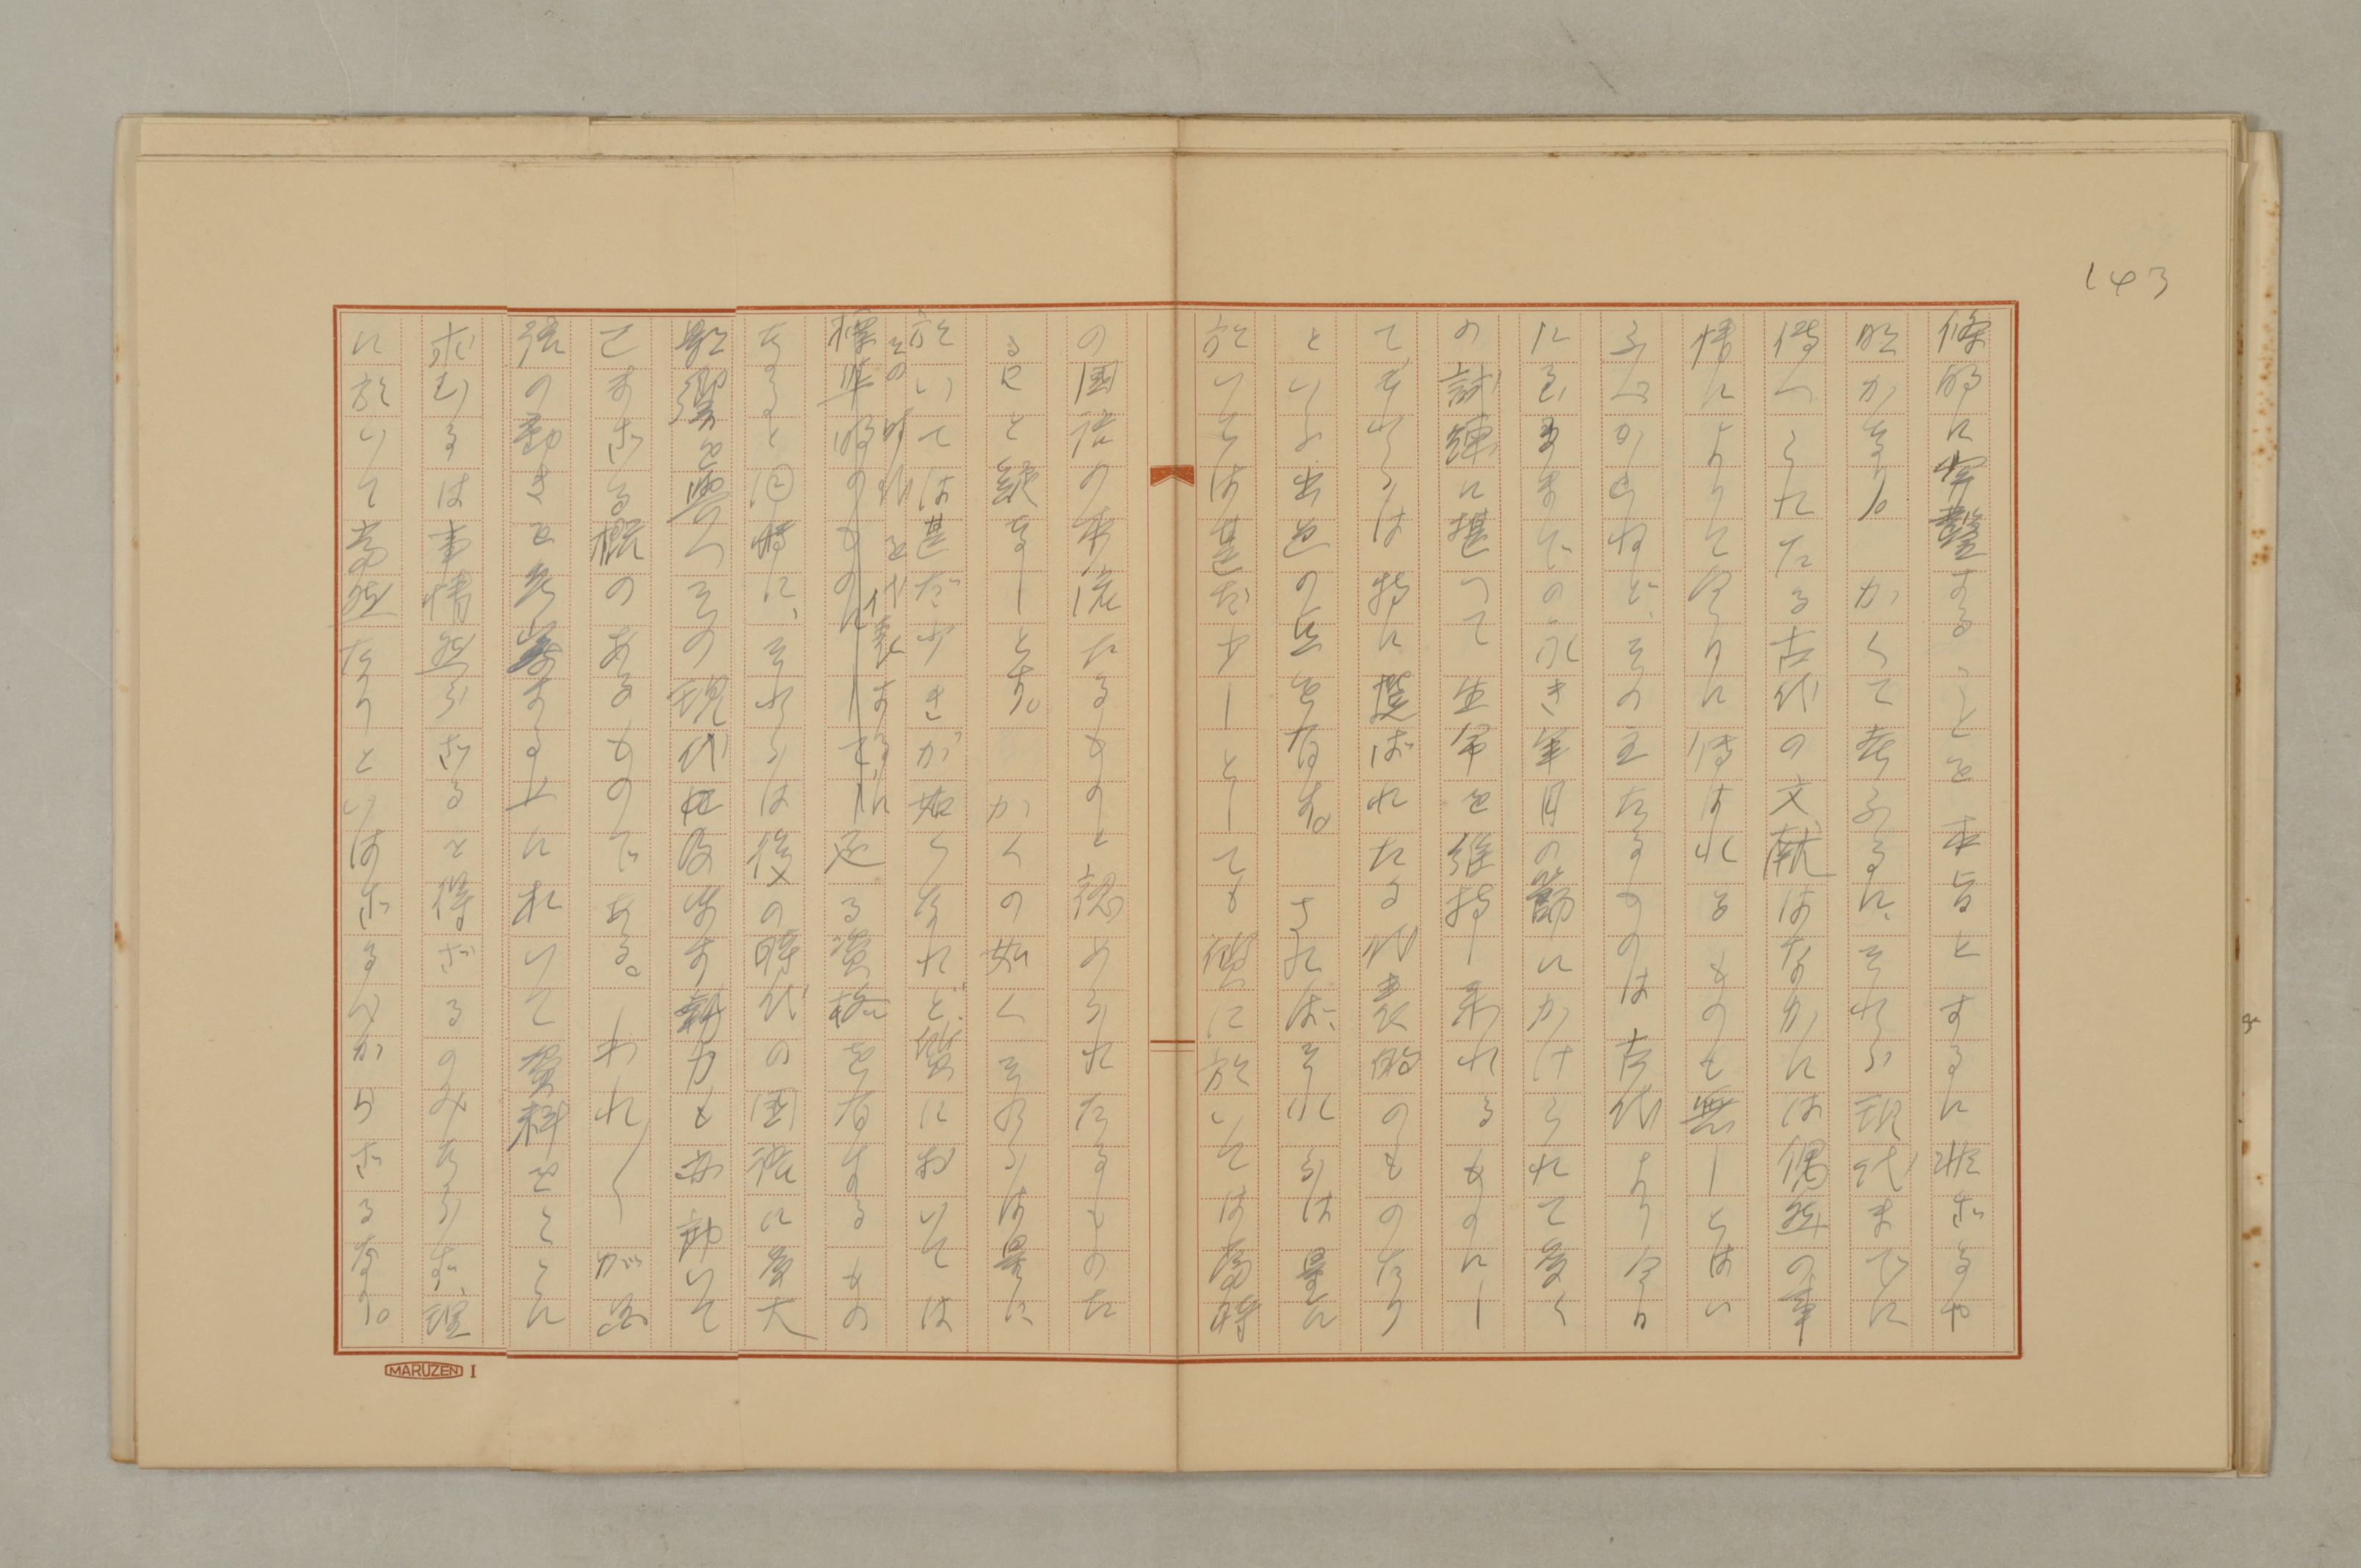 143
修的に穿鑿することを本旨とするに非ざるや
明かなり。かくて考ふるに、それら現代までに
傳へられたる古代の文献はなかには偶然の事
情によりて今日に傳はれるものも無しとはい
ふべからねど、その主たるものは古代より今日
に至るまでの永き年月の篩にかけられて多く
の試練に堪へて生命を維持し来れるものにし
てそれらは特に撰ばれたる代表的のものたり
といふ出色の点を有す。されば、それらは量に
於いては甚だ少しとしても質に於いては当時
の国語の本流たるものと認められたるものた
ること疑なしとす。かくの如くそれらは量に
於いては甚だ少きが如くなれど、質においては
その時代を代表するに足る資格を有するもの
なると同時に、それらは後の時代の国語に多大
影響を與へその現代に及ぼす勢力も亦動いて
已まざる概のあるものである。われ／＼が国
語の動きを考察する上に於いて資料をここに
求むるは事情然らざるを得ざるのみならず、理
に於いて当然なりといはざるべからざるなり。
MARUZEN I